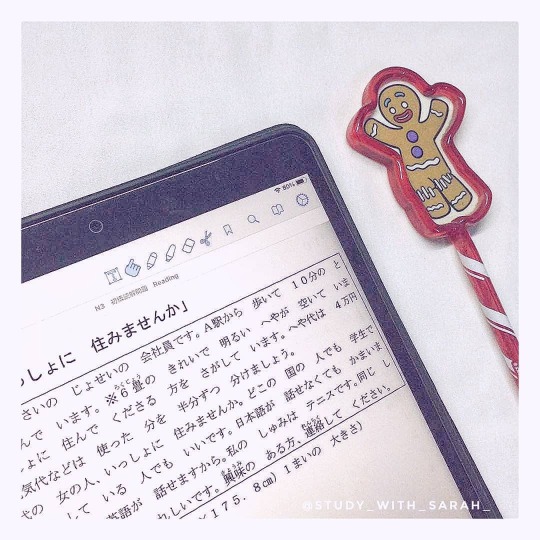 80%
N3 Reading
しょに 住みませんか」
さいの じょせいの 会社員です。A駅から 歩いて 10分の と
んで います。※6畳の きれいで 明るい へやが 空いて いま
ょに 住んで くださる 方を さがして います。へや代は 4万円
気代などは 使った 分を 半分ずつ 分けましょう。
の 女の人、いっしょに 住みませんか。どこの 国の 人でも 学生で
して いる 人でも いいです。日本語が 話せなくても かまいま
英語が 話せますから。私の しゅみは テニスです。同じ し
しいです。興味の ある方、連絡して ください。
×175.8cm) 1まいの 大きさ)
@STUDY_WITH_SARAH_